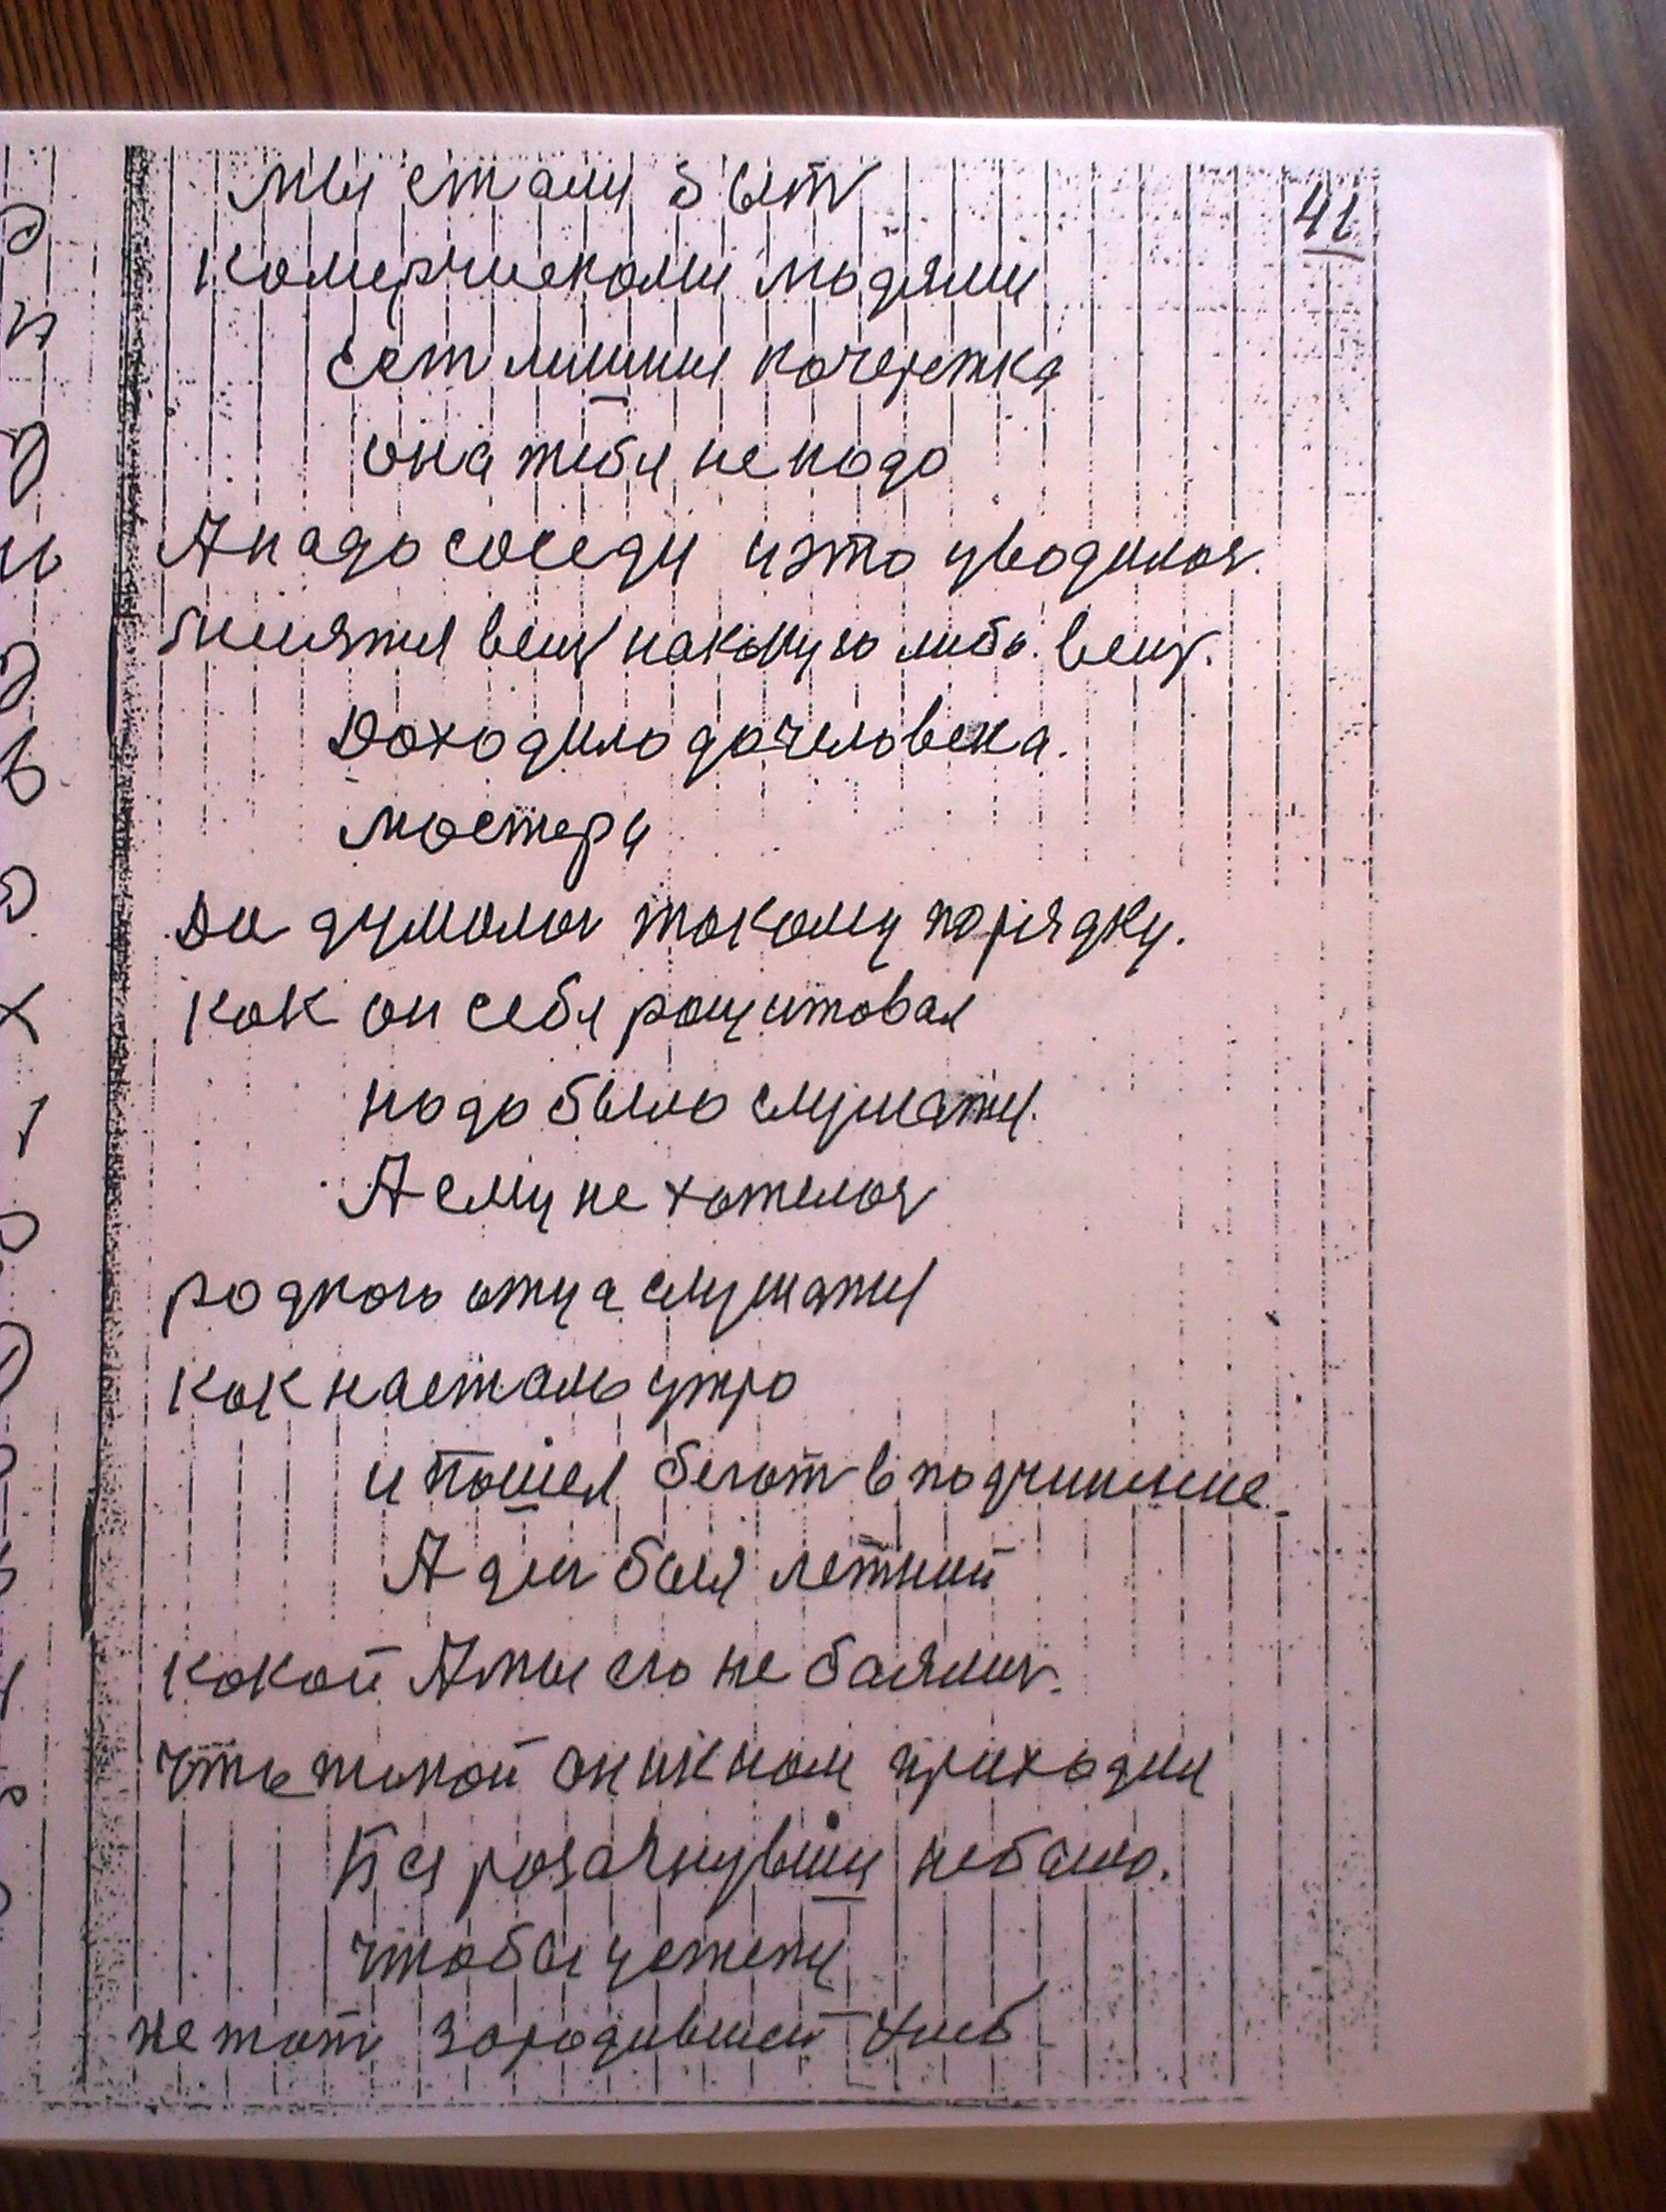 41
мы стали быт
комерчискоми людями
ест лишния кочережка
она тибя не надо
А надо соседу и это уводилос.
бминятя вещ на какую либо вещ.
Доходило до человека.
мостеру
До думолос токому порядку.
как он себя рощитовал
надо было слушатя.
А ему не хотелос
родного отца слушатя
как настало утро
и пошел бегат в подчинение.
А ден был летний
какой Амы его не баялис.
что токой он ик ном приходил
чтобы устепу
не тот зародившей хлеб